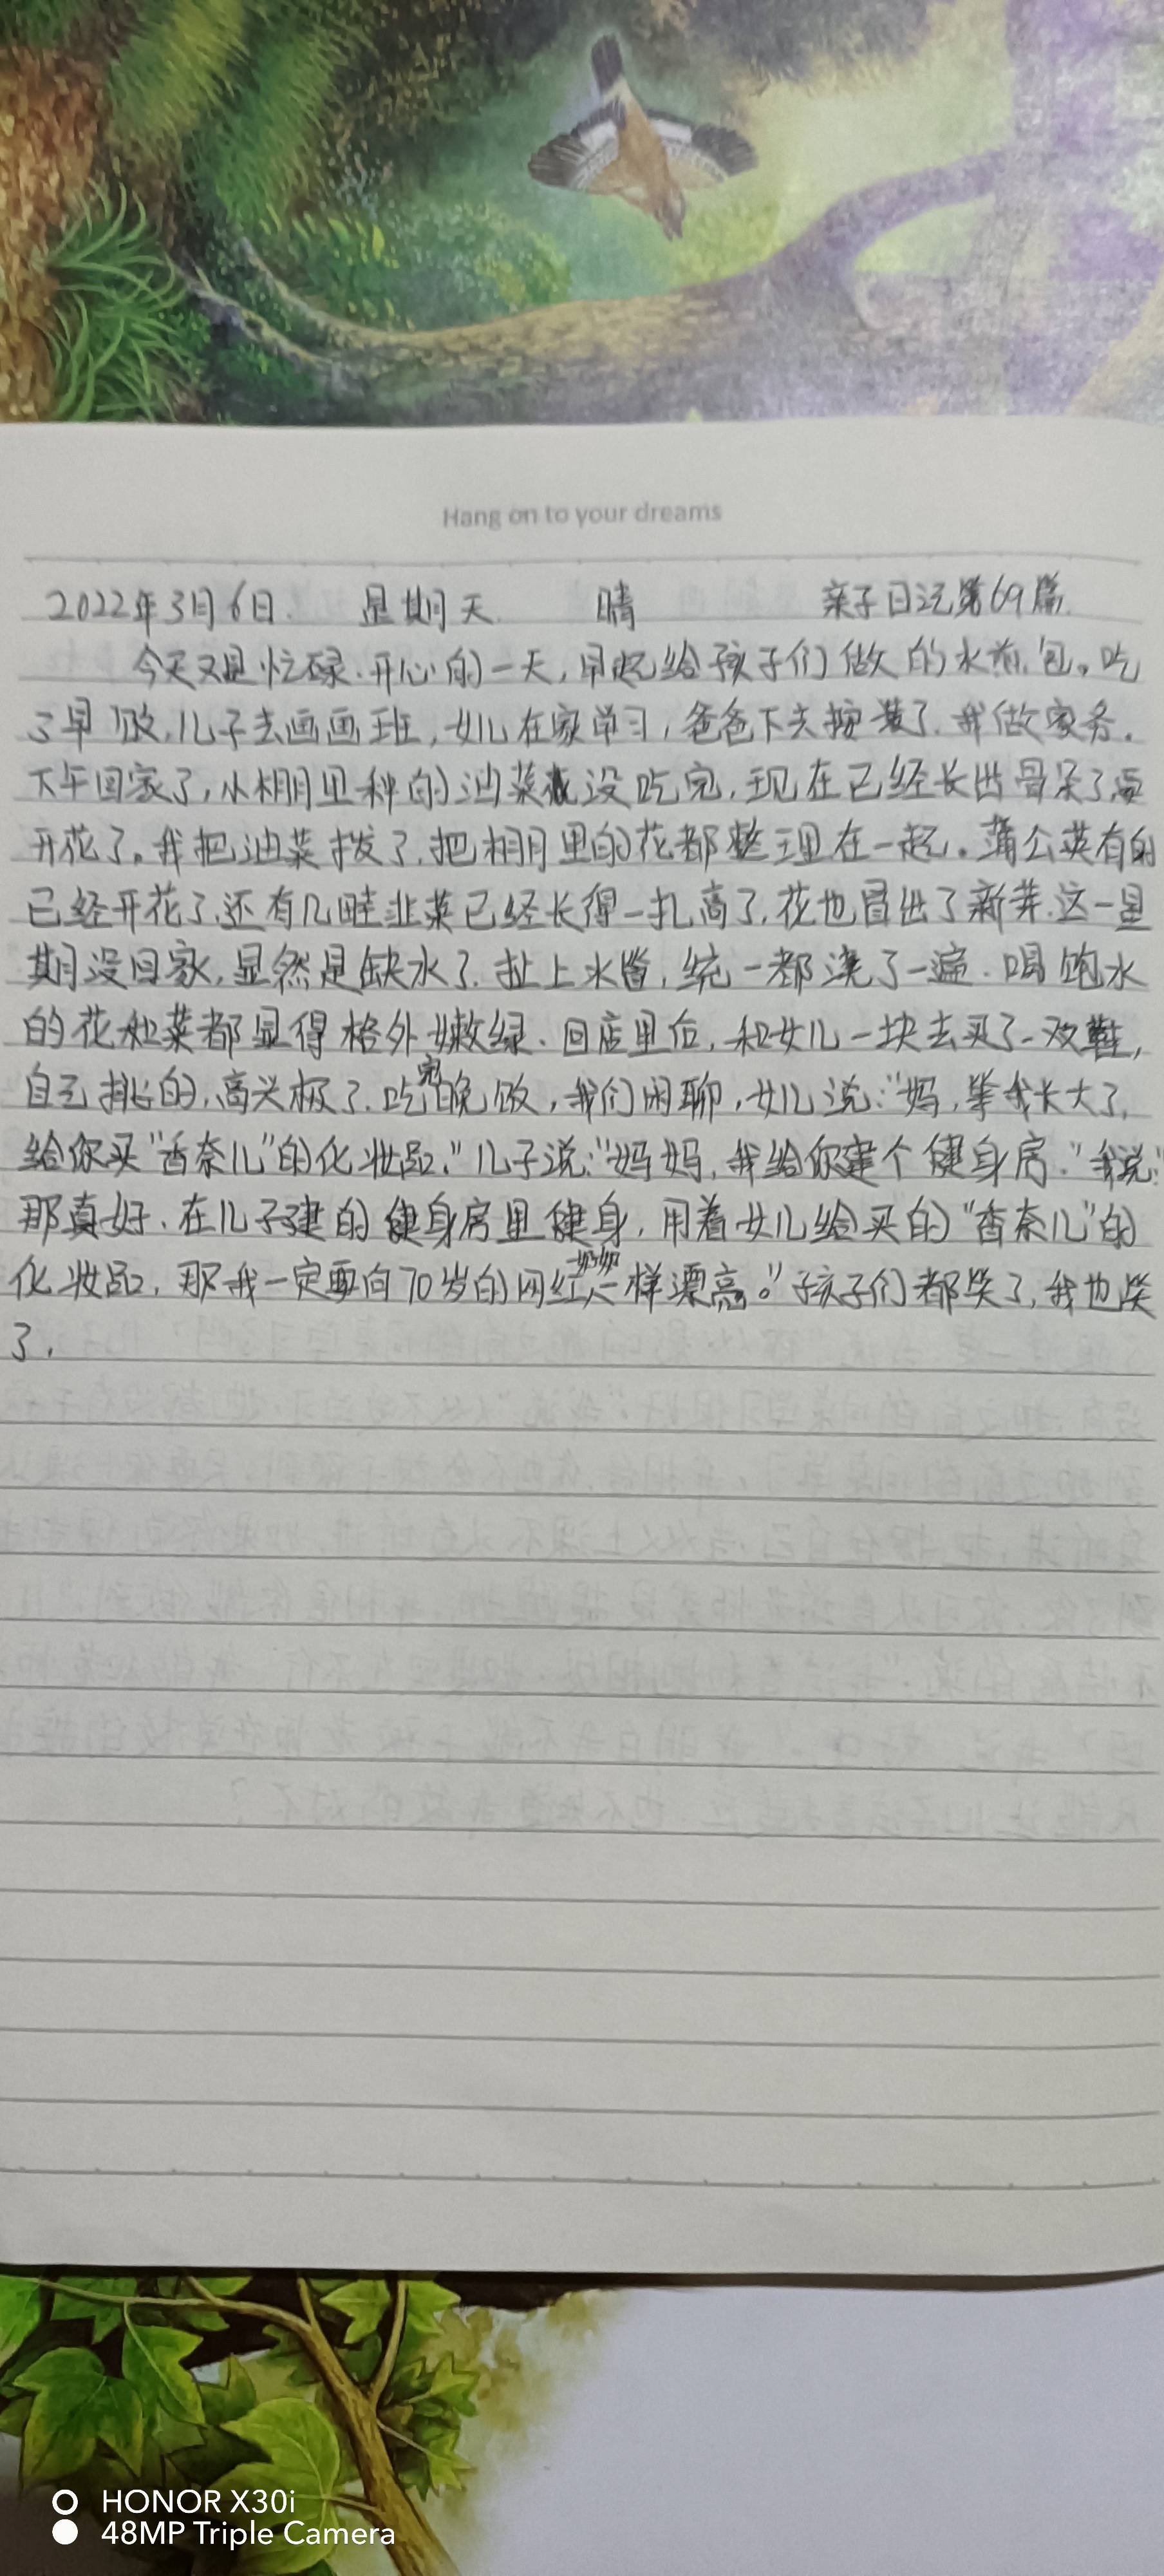 Hang on to your dreams
2022年3月6日. 星期天. 晴 亲子日记第69篇.
今天又是忙碌.开心的一天,早起给孩子们做的水煎包。吃
了早饭,儿子去画画班,女儿在家学习,爸爸下去按装了.我做家务.
下午回家了,小棚里种的油菜没吃完,现在已经长出骨朵了要
开花了。我把油菜拨了.把棚里的花都整理在一起。蒲公英有的
已经开花了.还有几畦韭菜已经长得一扎高了,花也冒出了新芽.这一星
期没回家,显然是缺水了.扯上水管,统一都浇了一遍.喝饱水
的花和菜都显得格外嫩绿.回店里后,和女儿一块去买了一双鞋,
自己挑的,高兴极了.吃完晚饭,我们闲聊,女儿说:"妈,等我长大了,
给你买"香奈儿"的化妆品."儿子说:"妈妈,我给你建个健身房."我说:"
那真好.在儿子建的健身房里健身,用着女儿给买的"香奈儿"的
化妆品,那我一定要向70岁的网红奶奶一样漂亮。"孩子们都笑了,我也笑
了.
HONOR X30i
48MP Triple Camera